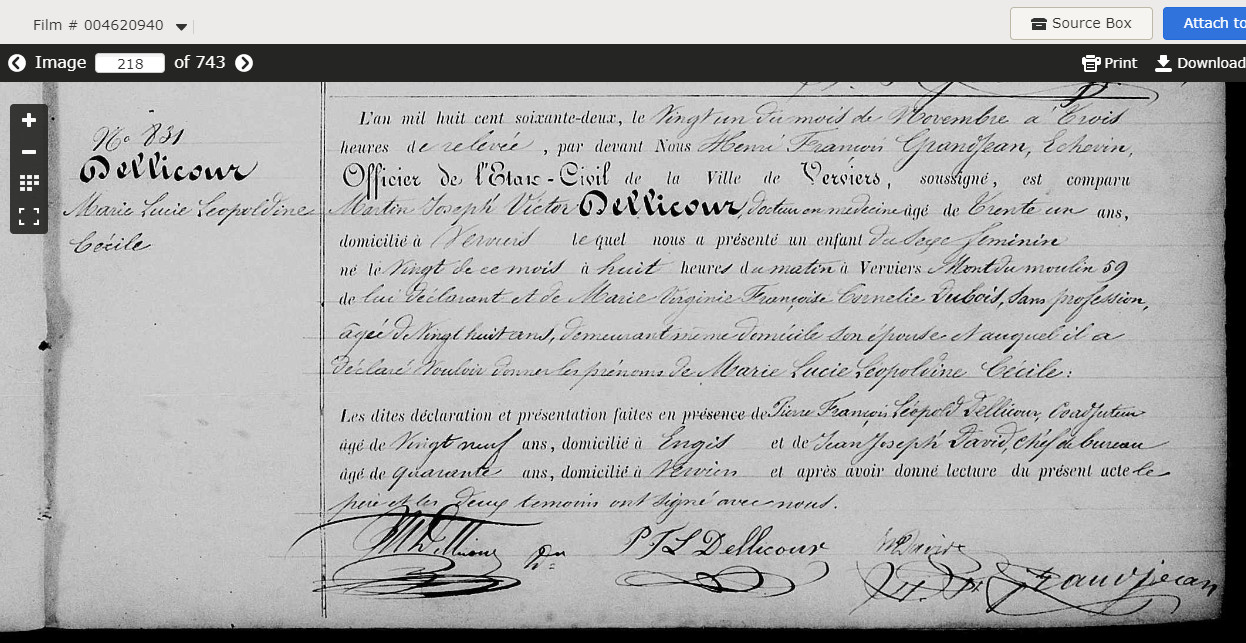 Film # 004620940
Source Box
Attach to
Image 218 of 743
Print
Download
No 831
Dellicour
Marie Lucie Léopoldine
Cécile
L'an mil huit cent soixante-deux, le Vingt un du mois de Novembre à Trois
heures de relevée, par devant Nous Henri François Grandjean, Echevin,
Officier de l'Etat-Civil de la Ville de Verviers, soussigné, est comparu
Martin Joseph Victor Dellicour, docteur en médecine âgé de Trente un ans,
domicilié à Verviers lequel nous a présenté un enfant du sexe féminin
né le Vingt de ce mois à huit heures du matin à Verviers Mont du moulin 59
de lui déclarant et de Marie Virginie Françoise Cornelie Dubois, sans profession,
âgée de Vingt huit ans, demeurant même domicile son épouse et auquel il a
déclaré Vouloir donner les prénoms de Marie Lucie Léopoldine Cécile :
Les dites déclaration et présentation faites en présence de Pierre François Léopold Dellicour, Coadjuteur
âgé de Vingt neuf ans, domicilié à Engis et de Jean Joseph David, chef de bureau
âgé de quarante ans, domicilié à Verviers et après avoir donné lecture du présent acte le
père et les deux temoins ont signé avec nous.
Dellicour
P F L Dellicour
David
Grandjean